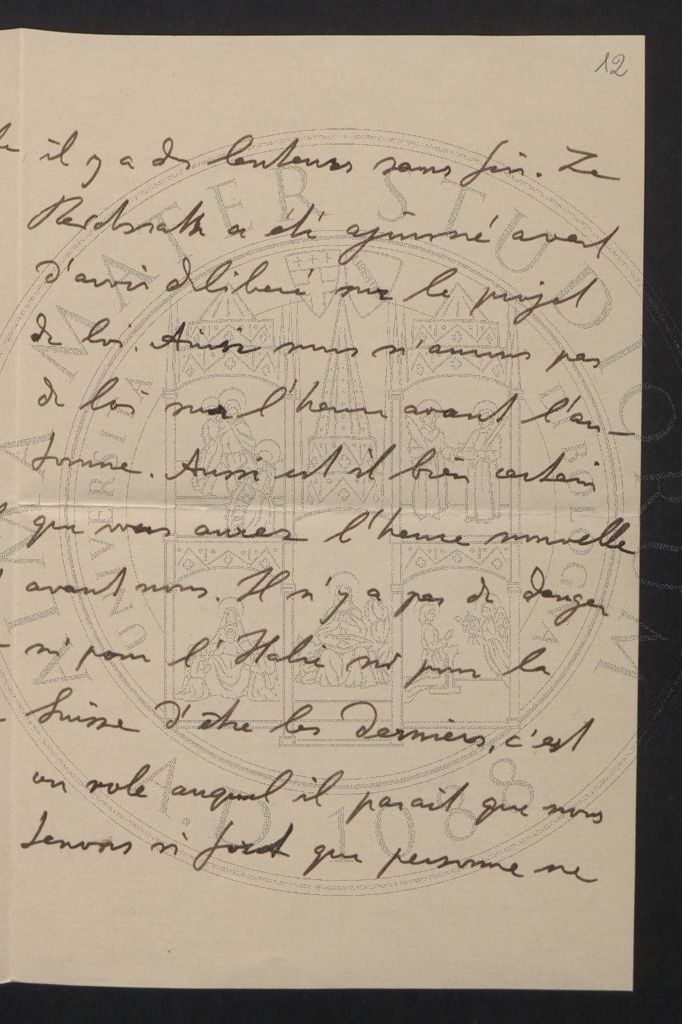 12
il y a des lenteurs sans fin. Le
Reichsrath a été ajourné avant
d'avoir délibéré sur le projet
de loi. Ainsi nous n'aurons pas
de loi sur l'heure avant l'au-
tomne. Aussi est il bien certain
que vous aurez l'heure nouvelle
avant nous. Il n'y a pas de danger
ni pour l'Italie ni pour la
Suisse d'être les derniers, c'est
un role auquel il parait que nous
tenons si fort que personne ne
ALMA MATER STUDIORUM
UNIVERSITÀ BOLOGNA
A.D. 1088